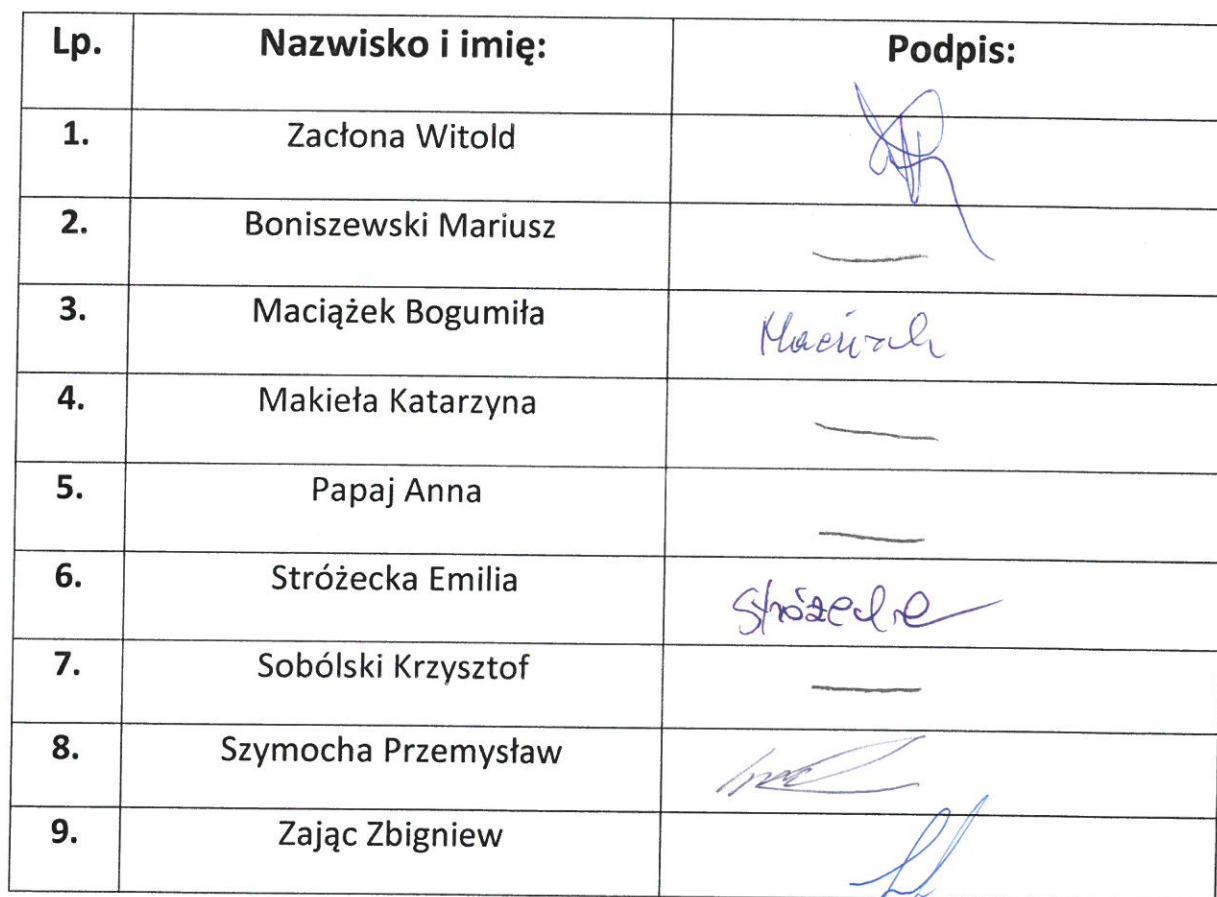 Lp. Nazwisko i imię: Podpis:
1. Zacłona Witold
2. Boniszewski Mariusz —
3. Maciążek Bogumiła
4. Makieła Katarzyna —
5. Papaj Anna —
6. Stróżecka Emilia
7. Sobólski Krzysztof —
8. Szymocha Przemysław
9. Zając Zbigniew